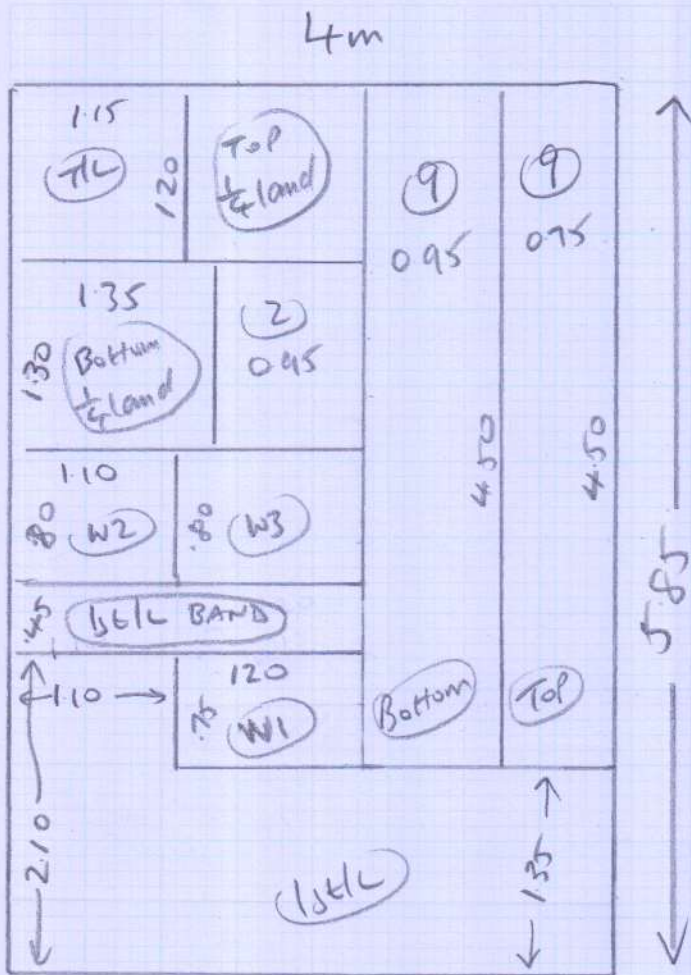 4m
1.15
T/L
120
Top
1/4 land
9
095
9
095
1.35
1.30
Bottom
1/4 land
2
095
4.50
4.50
5.85
1.10
.80
W2
.80
W3
.45
1st/L BAND
1.10
120
.75
W1
Bottom
Top
2.10
1st/L
1.35